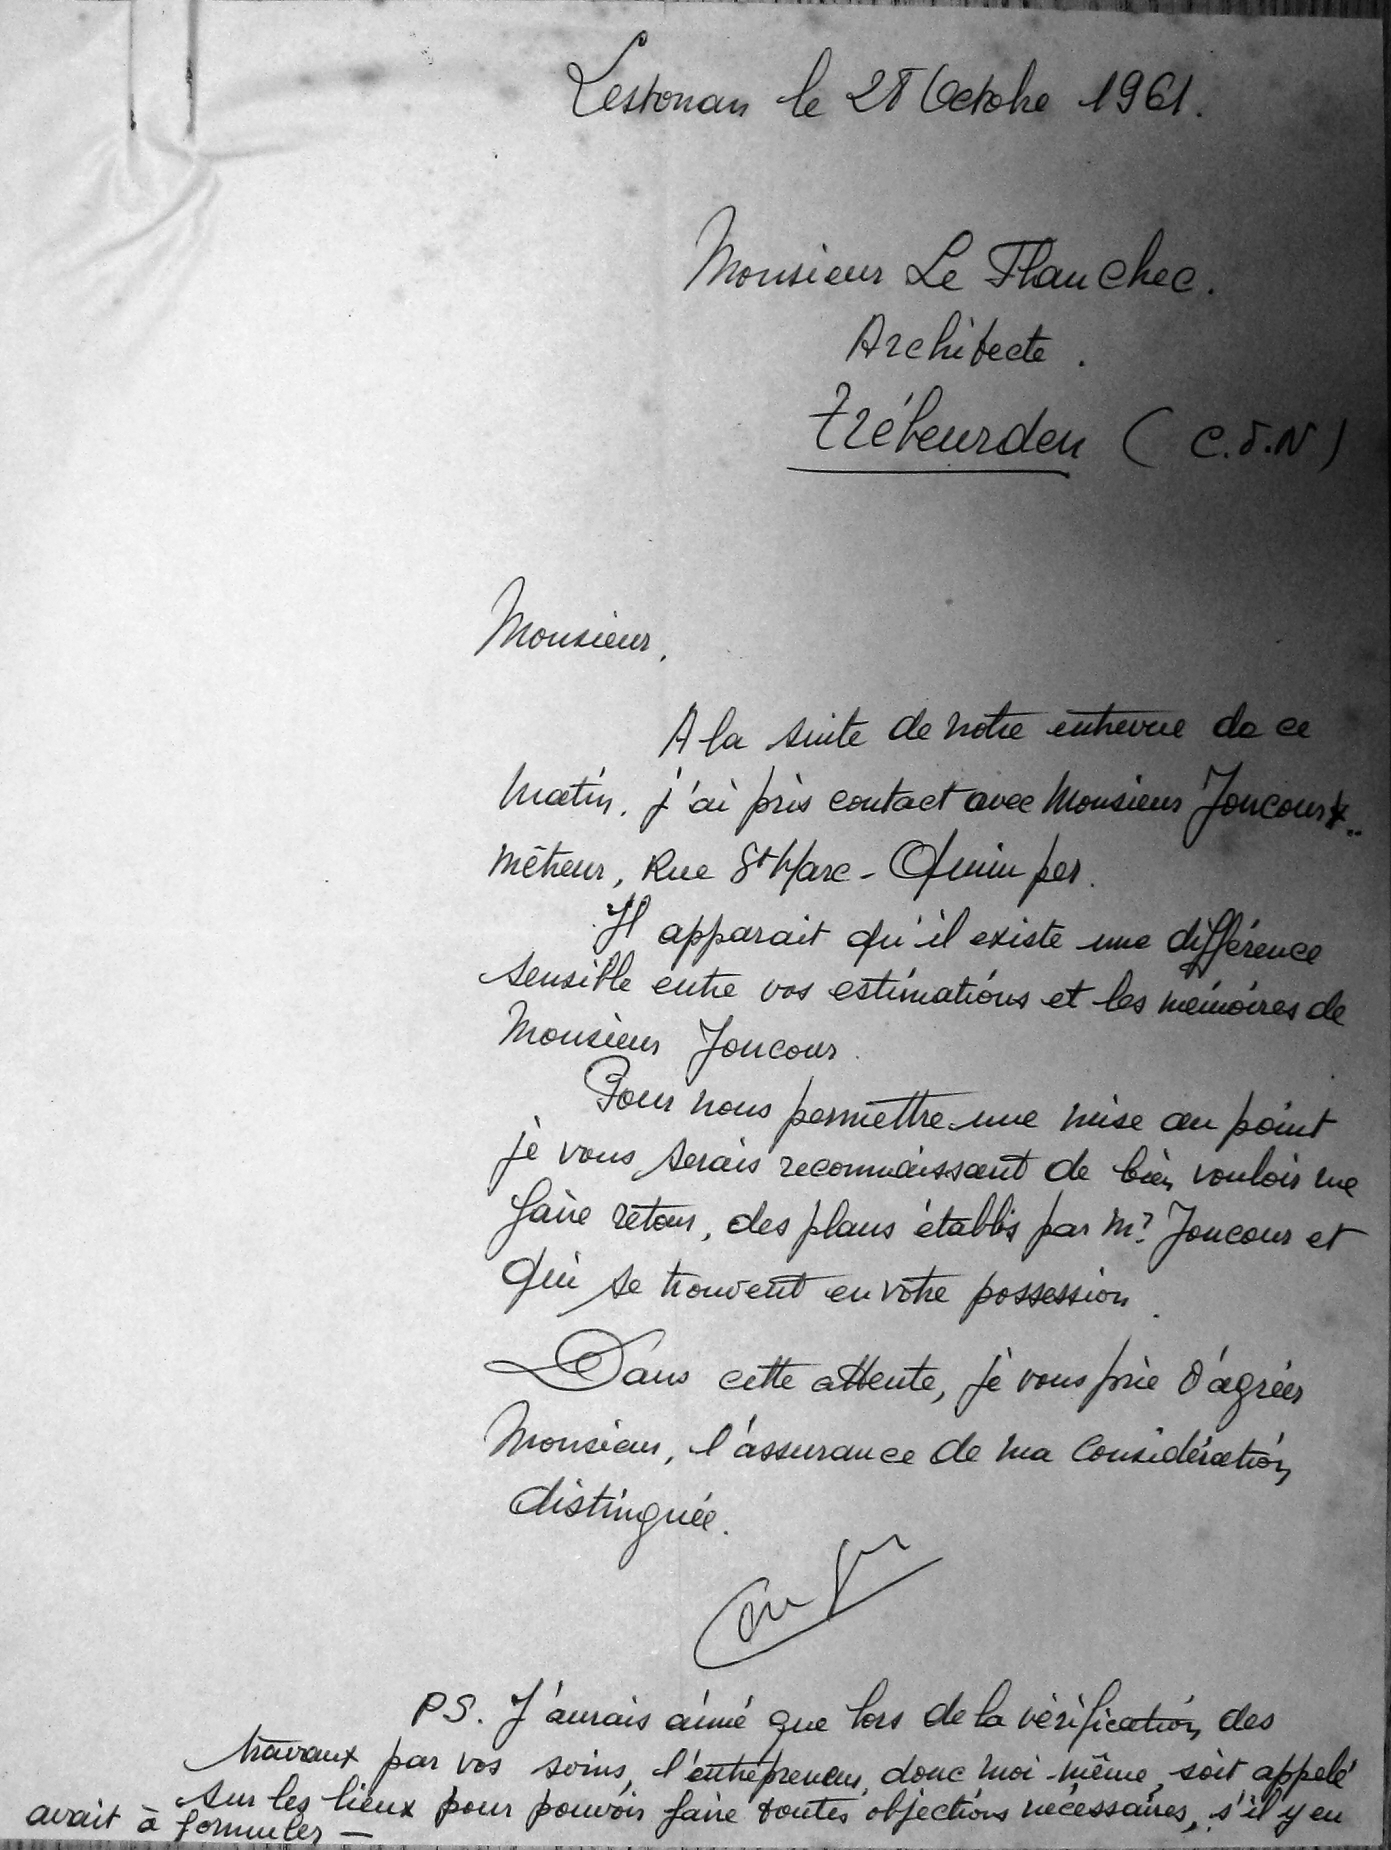 Lestonan le 28 Octobre 1961.
Monsieur Le Flanchec.
Architecte.
Trébeurden (C.d.N)
Monsieur,
A la suite de notre entrevue de ce
matin, j'ai pris contact avec Monsieur Joncour
métreur, Rue St Marc - Quimper.
Il apparait qu'il existe une différence
sensible entre vos estimations et les mémoires de
Monsieur Joncour.
Pour nous permettre une mise au point
je vous serais reconnaissant de bien vouloir me
faire retour, des plans établis par Mr Joncour et
qui se trouvent en votre possession.
Dans cette attente, je vous prie d'agréer
Monsieur, l'assurance de ma considération
distinguée.
PS. J'aurais aimé que lors de la vérification des
travaux par vos soins, l'entrepreneur, donc moi-même, soit appelé
sur les lieux pour pouvoir faire toutes objections nécessaires, s'il y en
avait à formuler —